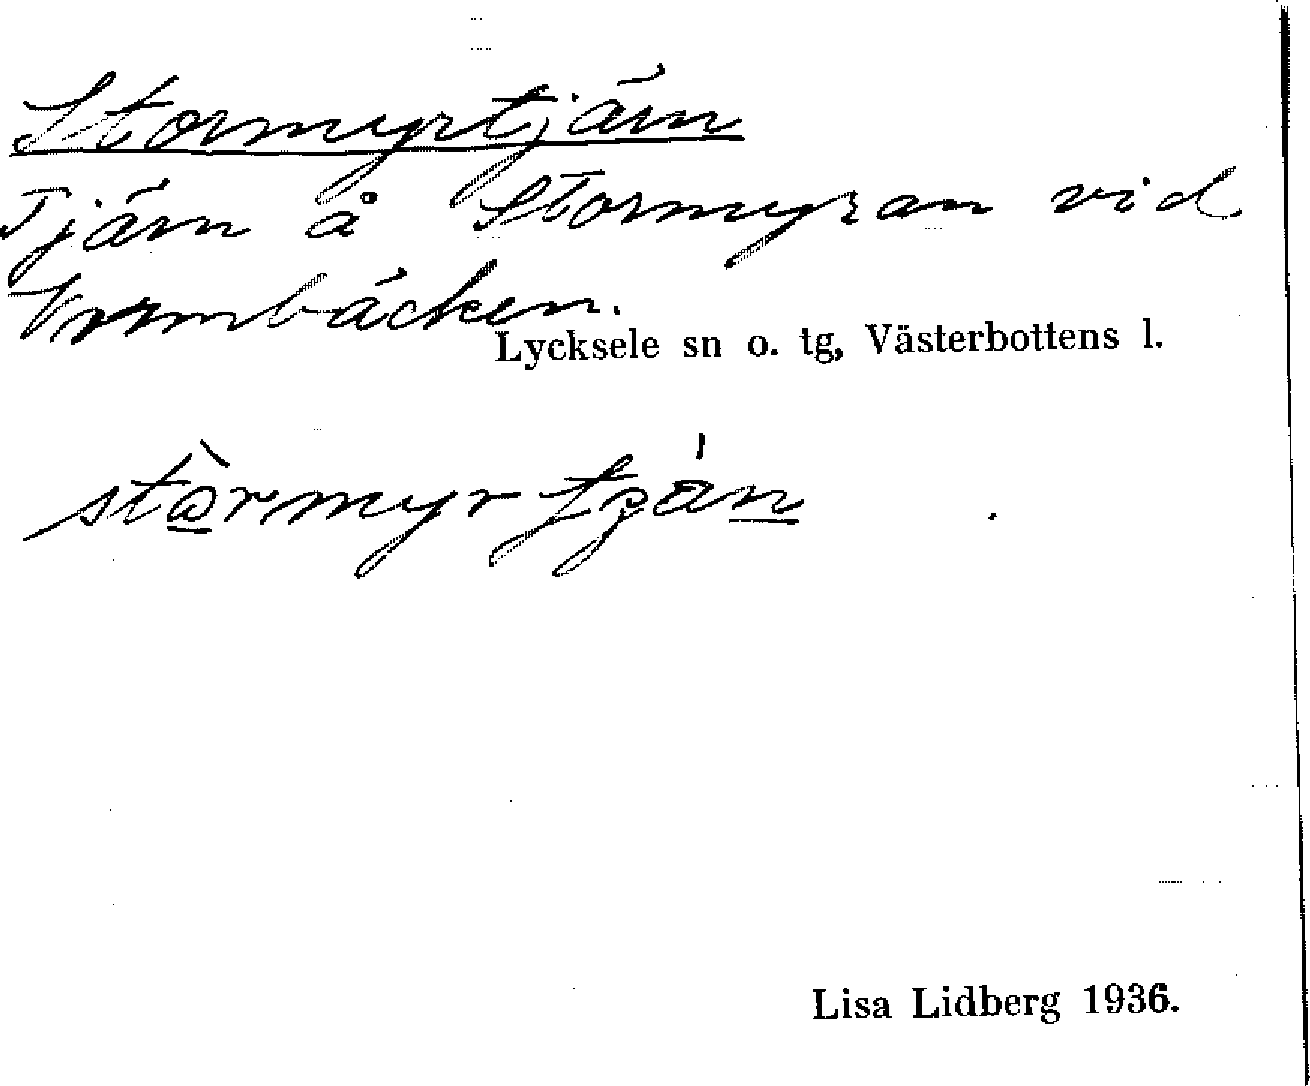 Stormyrtjärn
Tjärn å Stormyran vid
Vormbäcken.
Lycksele sn o. tg, Västerbottens l.
Lisa Lidberg 1936.